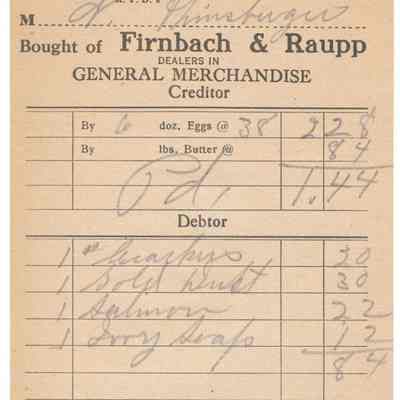 M
Bought of Firnbach & Raupp
DEALERS IN
GENERAL MERCHANDISE
Creditor
By 6 doz. Eggs @ 38 2 28
By lbs. Butter @ 84
Pd. 1.44
Debtor
1 # Crackers 20
1 Gold Dust 30
1 Salmon 22
1 Ivory Soap 12
84